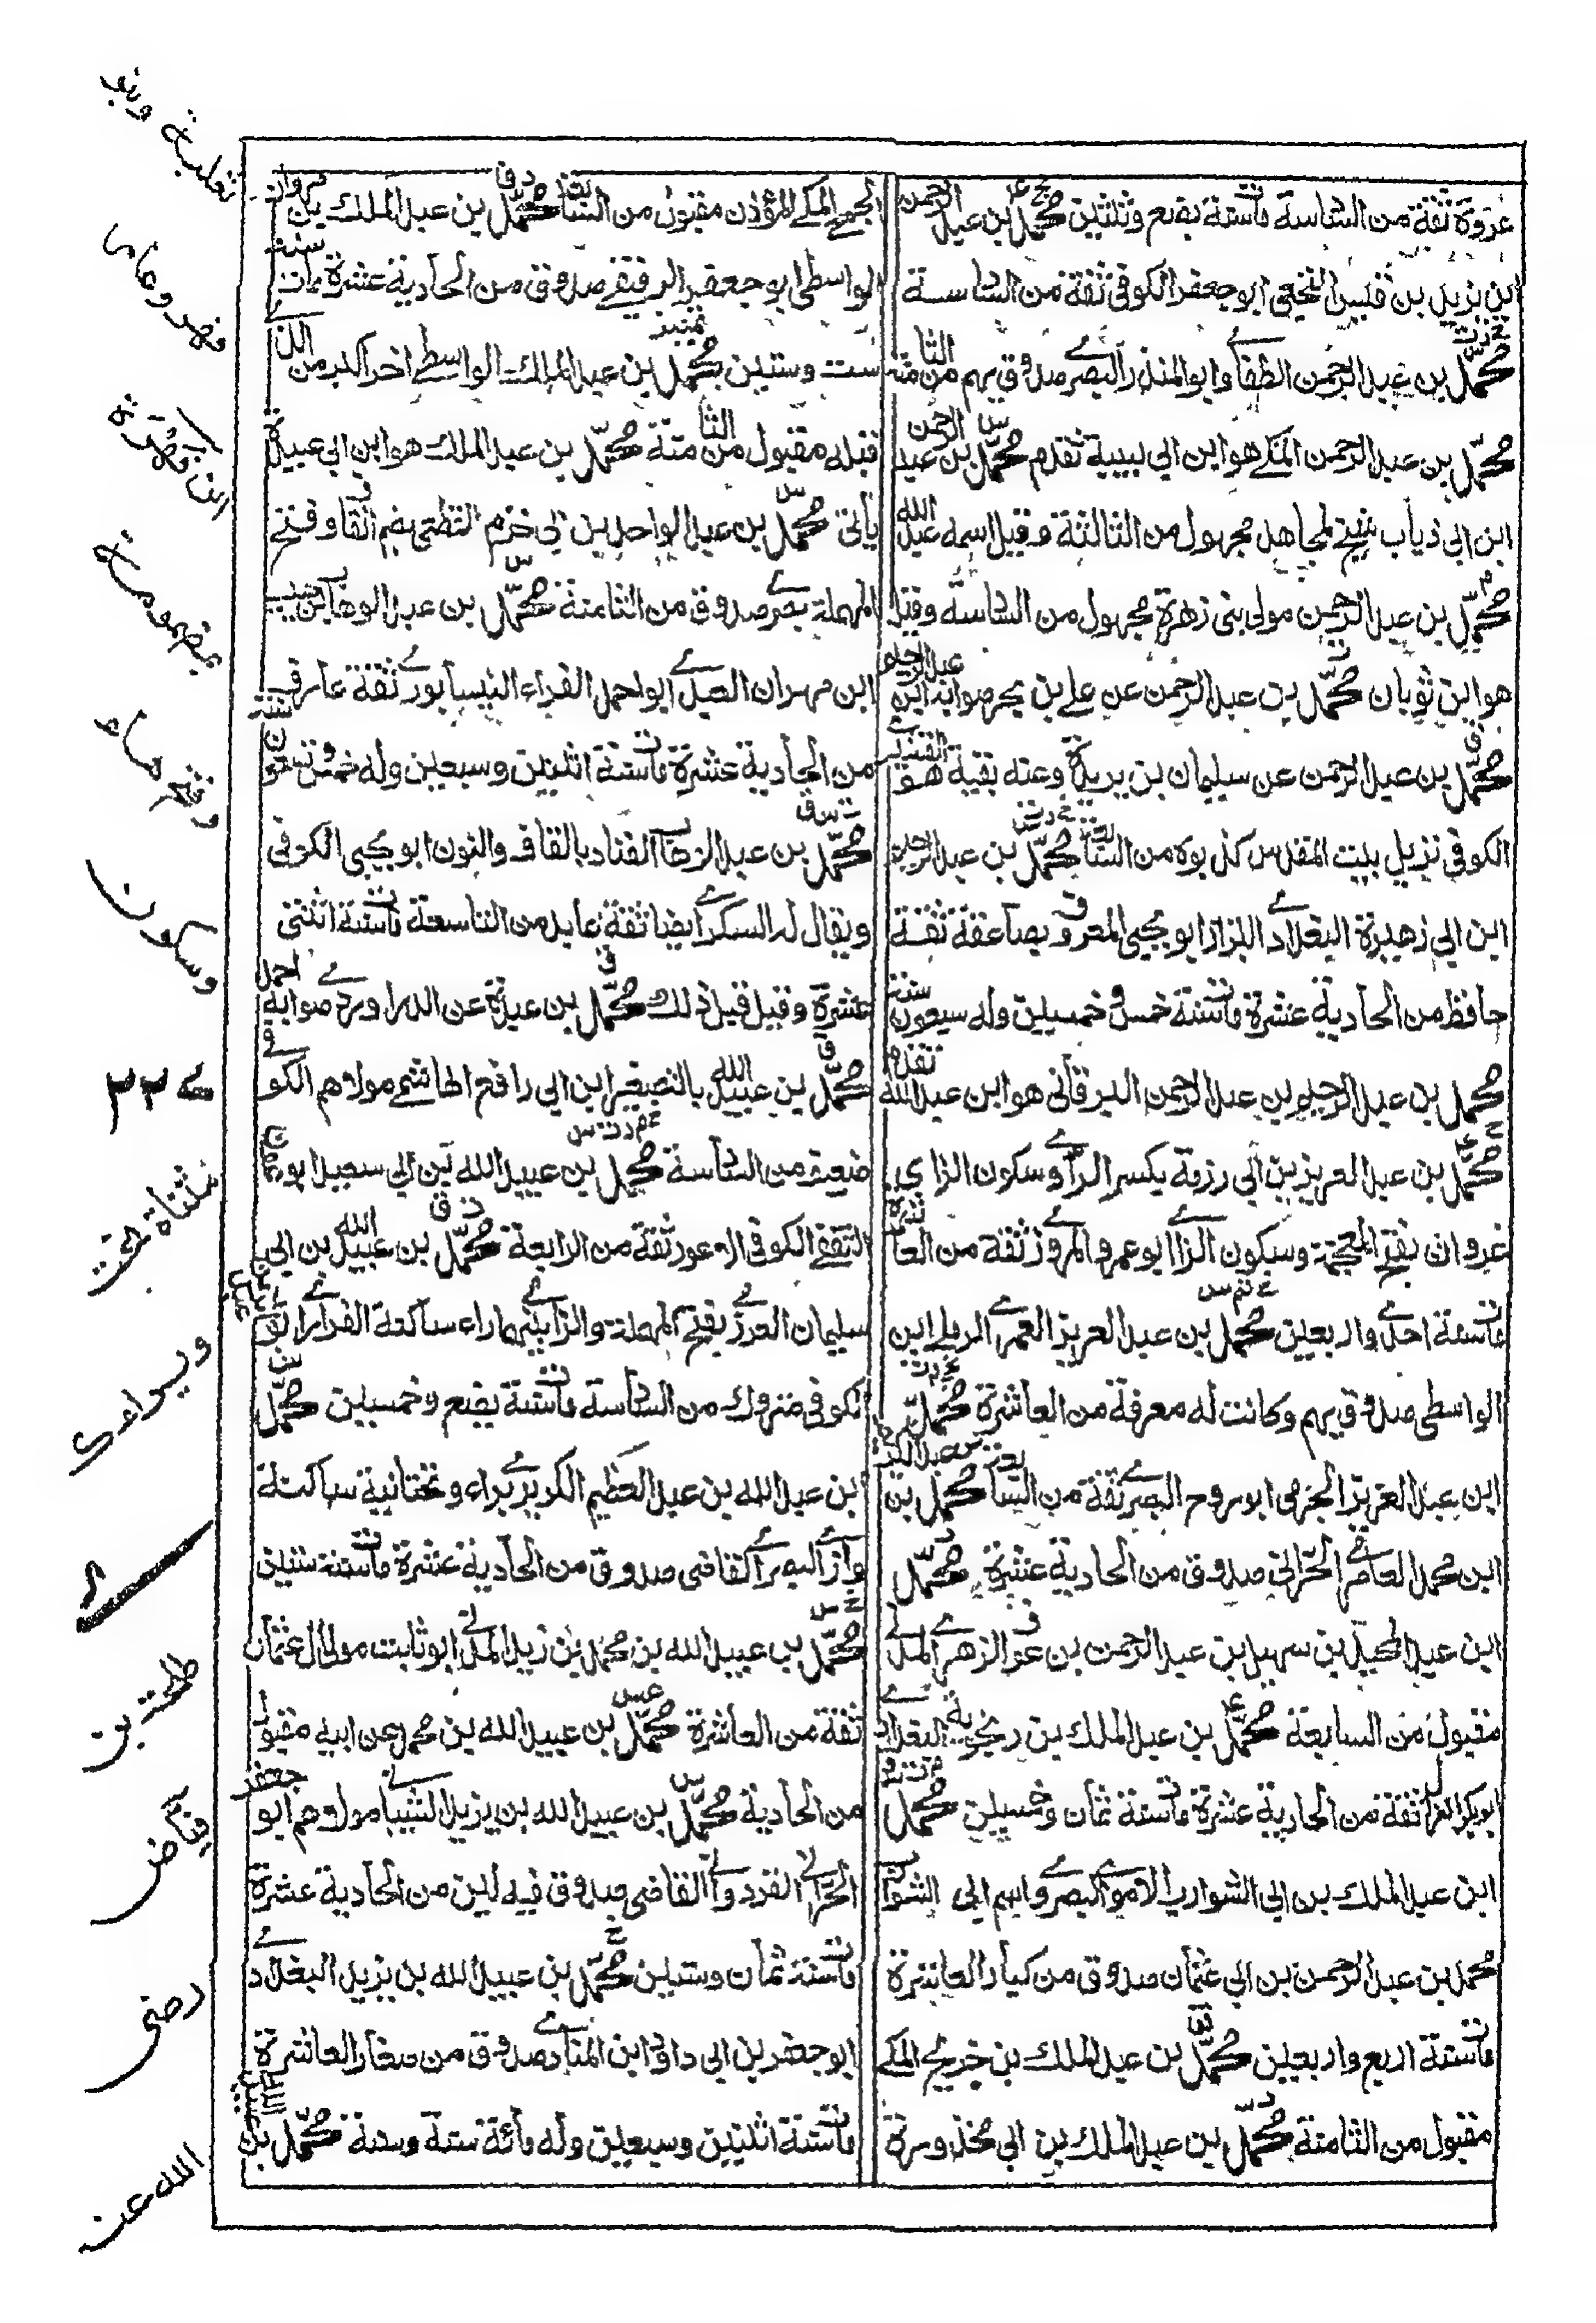 عروة ثقة من السادسة مات سنة بضع وثلثين محمد بن عبد الرحمن
ابن يزيد بن قيس النخعي ابو جعفر الكوفي ثقة من السادسة
محمد بن عبد الرحمن الطفاوي ابو المنذر البصري صدوق يهم من الثامنة
محمد بن عبد الرحمن المكي هو ابن ابي لبيبة تقدم محمد بن عبد الرحمن
ابن ابي ذياب شيخ لمجاهد مجهول من الثالثة وقيل اسمه عبد الله
محمد بن عبد الرحمن مولى بني زهرة مجهول من السادسة وقيل
هو ابن ثوبان محمد بن عبد الرحمن عن علي بن بحر صوابه ابن عبد الرحيم
محمد بن عبد الرحمن عن سليمان بن بريدة وعنه بقية هو القشيري
الكوفي نزيل بيت المقدس كذبوه من السابعة محمد بن عبد الرحيم
ابن ابي زهيرة البغدادي البزاز ابو يحيى المعروف بصاعقة ثقة
حافظ من الحادية عشرة مات سنة خمس وخمسين وله سبعون سنة
محمد بن عبد الرحيم بن عبد الرحمن البرقاني هو ابن عبد الله تقدم
محمد بن عبد العزيز بن ابي رزمة بكسر الراء وسكون الزاي
غزوان بفتح المعجمة وسكون الزاي ابو عمرو المروزي ثقة من العاشرة
مات سنة احدى واربعين محمد بن عبد العزيز العمري الرملي ابن
الواسطي صدوق يهم وكانت له معرفة من العاشرة محمد
ابن عبد العزيز الجرمي ابو روح البصري ثقة من السابعة محمد بن عبد الكريم
ابن محمد الحراني صدوق من الحادية عشرة محمد
ابن عبد المجيد بن سهيل بن عبد الرحمن بن عوف الزهري المدني
مقبول من السابعة محمد بن عبد الملك بن زنجويه البغدادي
ابو بكر الغزال ثقة من الحادية عشرة مات سنة ثمان وخمسين محمد
ابن عبد الملك بن ابي الشوارب الاموي البصري واسم ابي الشوارب
محمد بن عبد الرحمن بن ابي عثمان صدوق من كبار العاشرة
مات سنة اربع واربعين محمد بن عبد الملك بن جريج المكي
مقبول من الثامنة محمد بن عبد الملك بن ابي محذورة
الجمحي المكي المؤذن مقبول من السابعة محمد بن عبد الملك بن مروان
الواسطي ابو جعفر الدقيقي صدوق من الحادية عشرة مات سنة
ست وستين محمد بن عبد الملك الواسطي اخر اكبر من الذي
قبله مقبول من الثامنة محمد بن عبد الملك هو ابن ابي عبيدة
ياتي محمد بن عبد الواحد بن ابي حزم القطعي بضم القاف وفتح
المهملة بصري صدوق من الثامنة محمد بن عبد الوهاب بن حبيب
ابن مهران العبدي ابو احمد الفراء النيسابوري ثقة عارف
من الحادية عشرة مات سنة اثنتين وسبعين وله خمس وتسعون سنة
محمد بن عبد الوهاب القناد بالقاف والنون ابو يحيى الكوفي
ويقال له السكري ايضا ثقة عابد من التاسعة مات سنة اثنتي
عشرة وقيل قبل ذلك محمد بن عبدة عن الدراوردي صوابه احمد
محمد بن عبيد الله بالتصغير ابن ابي رافع الهاشمي مولاهم الكوفي
ضعيف من السادسة محمد بن عبيد الله بن ابي سعيد ابو عون
الثقفي الكوفي الاعور ثقة من الرابعة محمد بن عبيد الله بن ابي
سليمان العرزمي بفتح المهملة والزاي بينهما راء ساكنة الفزاري ابو عبد الرحمن
الكوفي متروك من السادسة مات سنة بضع وخمسين محمد
ابن عبد الله بن عبد العظيم الكريزي براء وتحتانية ساكنة
وزاي البصري القاضي صدوق من الحادية عشرة مات سنة ستين
محمد بن عبيد الله بن محمد بن زيد المدني ابو ثابت مولى ال عثمان
ثقة من العاشرة محمد بن عبيد الله بن محمد عن ابيه مقبول
من الحادية محمد بن عبيد الله بن يزيد الشيباني مولاهم ابو جعفر
الحراني القردواني القاضي صدوق فيه لين من الحادية عشرة
مات سنة ثمان وستين محمد بن عبيد الله بن يزيد البغدادي
ابو جعفر بن ابي داود ابن المنادي صدوق من صغار العاشرة
مات سنة اثنتين وسبعين وله مائة سنة وسنة محمد بن عبيد
ثعلبة وبنو
فهر وعامر
ابن فهرة
بمضمومة
وفتح هاء
وسكون
٢٢ه
مثناة تحت
وبراء
طلحة بن
رضي
الله عنه